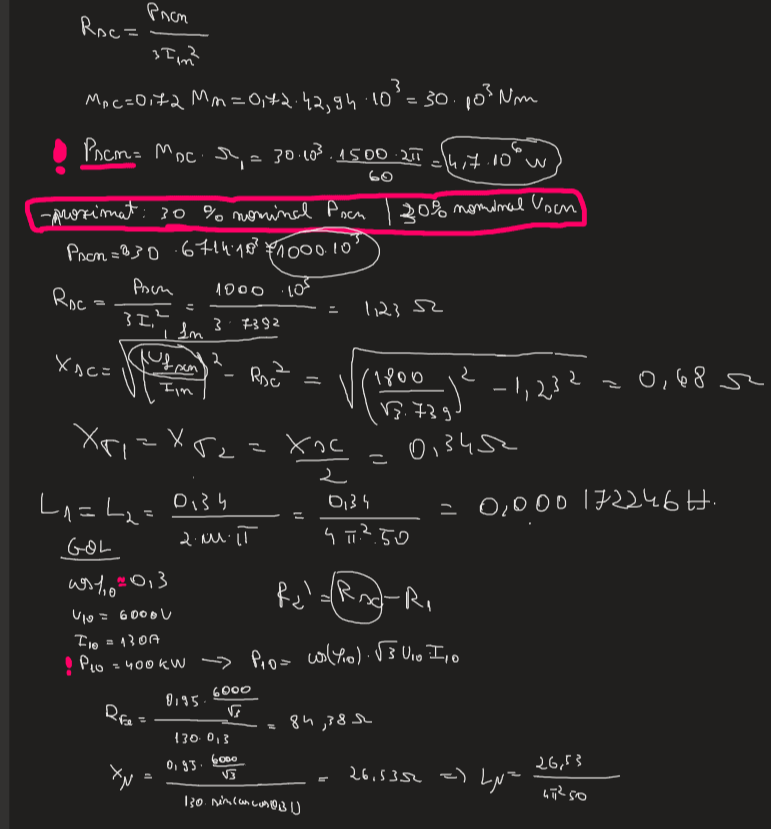 R_DC = P_DCM / 3 I_1n²
M_DC = 0,72 M_n = 0,72 · 42,94 · 10³ = 30 · 10³ Nm
! P_DCM = M_DC · Ω_1 = 30 · 10³ · 1500 · 2π / 60 = 4,7 · 10⁶ W
- aproximat : 30 % nominal P_DCM | 30% nominal U_DCM
P_DCM = 0,30 · 6714 · 10³ = 1000 · 10³
R_DC = P_DCM / 3 I_1,fn² = 1000 · 10³ / 3 · 739² = 1,23 Ω
X_DC = √((U_f DCM / I_1n)² - R_DC²) = √((1800 / √3 · 739)² - 1,23²) = 0,68 Ω
X_σ1 = X_σ2 = X_DC / 2 = 0,34 Ω
L_1 = L_2 = 0,34 / 2 · π = 0,34 / 4 π² · 50 = 0,000172246 H.
GOL
cos φ_10 = 0,3
R_2' = R_DC - R_1
U_10 = 6000 V
I_10 = 130 A
! P_10 = 400 kW → P_10 = cos(φ_10) · √3 U_10 · I_10
R_Fe = 0,95 · 6000/√3 / 130 · 0,3 = 84,38 Ω
X_N = 0,95 · 6000/√3 / 130 · sin(arccos 0,3) = 26,53 Ω ⇒ L_N = 26,53 / 4π² 50